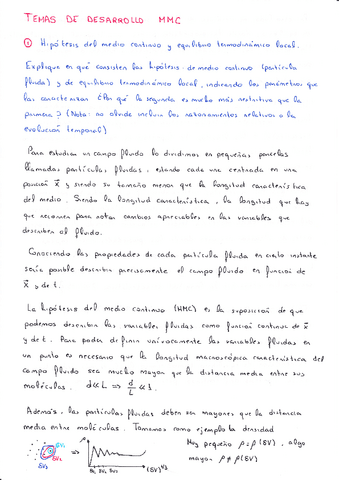 TEMAS DE DESARROLLO MMC
① Hipótesis del medio continuo y equilibrio termodinámico local.
Explique en qué consisten las hipótesis de medio continuo (partícula
fluida) y de equilibrio termodinámico local, indicando los parámetros que
las caracterizan ¿Por qué la segunda es mucho más restrictiva que la
primera? (Nota: no olvide incluir los razonamientos relativos a la
evolución temporal)
Para estudiar un campo fluido lo dividimos en pequeñas parcelas
llamadas partículas fluidas, estando cada una centrada en una
posición x⃗ y siendo su tamaño menor que la longitud característica
del medio. Siendo la longitud característica, la longitud que hay
que recorrer para notar cambios apreciables en las variables que
describen al fluido.
Conociendo las propiedades de cada partícula fluida en cierto instante
sería posible describir precisamente el campo fluido en función de
x⃗ y de t.
La hipótesis del medio continuo (HMC) es la suposición de que
podemos describir las variables fluidas como función continua de x⃗
y de t. Para poder definir unívocamente las variables fluidas en
un punto es necesario que la longitud macroscópica característica del
campo fluido sea mucho mayor que la distancia media entre sus
moléculas. d<<L => d/L <<1.
Además, las partículas fluidas deben ser mayores que la distancia
media entre moléculas. Tomamos como ejemplo la densidad
Muy pequeño ρ=ρ(δV), algo
mayor ρ≠ρ(δV)
δV1
δV2
δV3
ρ
δV1 δV2 δV3
(δV)^1/3